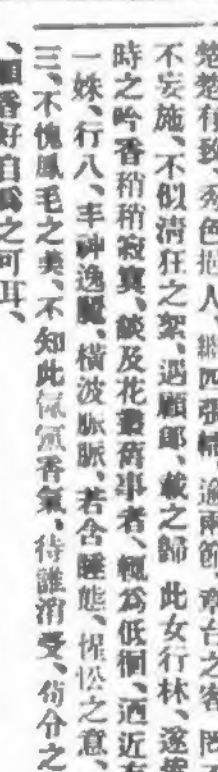 楚楚有致、秀色撩人、
不妄施、不似清狂之絮、遇顧郎、載之歸、此女行林、遂
時之吟香稍稍寂寞、談及花叢舊事者、輒爲低徊、迺近
一姝、行八、丰神逸麗、橫波脈脈、若含睡態、惺忪之意、
三、不愧鳳毛之美、不知此氤氳香氣、待誰消受、荀令之
顧香好自爲之可耳、